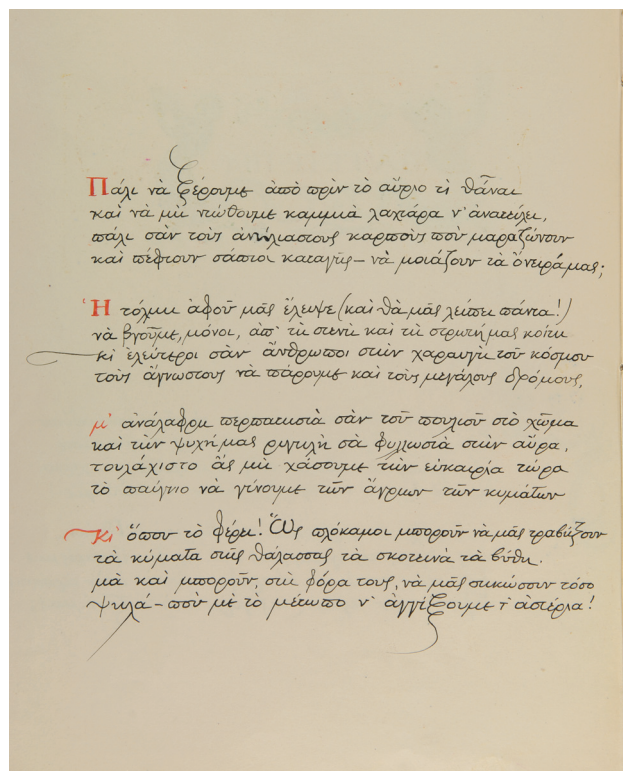 Πάλι νὰ ξέρουμε ἀπὸ πρὶν τὸ αὔριο τί θἆναι
καὶ νὰ μὴ νιώθουμε καμμιὰ λαχτάρα ν' ἀνατείλει,
πάλι σὰν τοὺς ἀνήλιαστους καρποὺς ποὺ μαραζώνουν
καὶ πέφτουν σάπιοι καταγῆς – νὰ μοιάζουν τὰ ὄνειρά μας;
Ἡ τόλμη ἀφοῦ μᾶς ἔλειψε (καὶ θὰ μᾶς λείπει πάντα!)
νὰ βγοῦμε, μόνοι, ἀπ' τὴ στενὴ καὶ τὴ στρωτή μας κοίτη
κι ἐλεύτεροι σὰν ἄνθρωποι στὴν χαραυγὴ τοῦ κόσμου
τοὺς ἄγνωστους νὰ πάρουμε καὶ τοὺς μεγάλους δρόμους,
μ' ἀνάλαφρη περπατησιὰ σὰν τοῦ πουλιοῦ στὸ χῶμα
καὶ τὴν ψυχή μας ριγηλὴ σὰ φυλλωσιὰ στὴν αὔρα,
τουλάχιστο ἂς μὴ χάσουμε τὴν εὐκαιρία τώρα
τὸ παίγνιο νὰ γίνουμε τῶν ἄγριων τῶν κυμάτων
κι' ὅπου τὸ φέρει! Ὡς πλόκαμοι μποροῦν νὰ μᾶς τραβήξουν
τὰ κύματα στῆς θάλασσας τὰ σκοτεινὰ τὰ βύθη.
μὰ καὶ μποροῦν, στὴ φόρα τους, νὰ μᾶς σηκώσουν τόσο
ψηλά – ποὺ μὲ τὸ μέτωπο ν' ἀγγίξουμε τ' ἀστέρια!